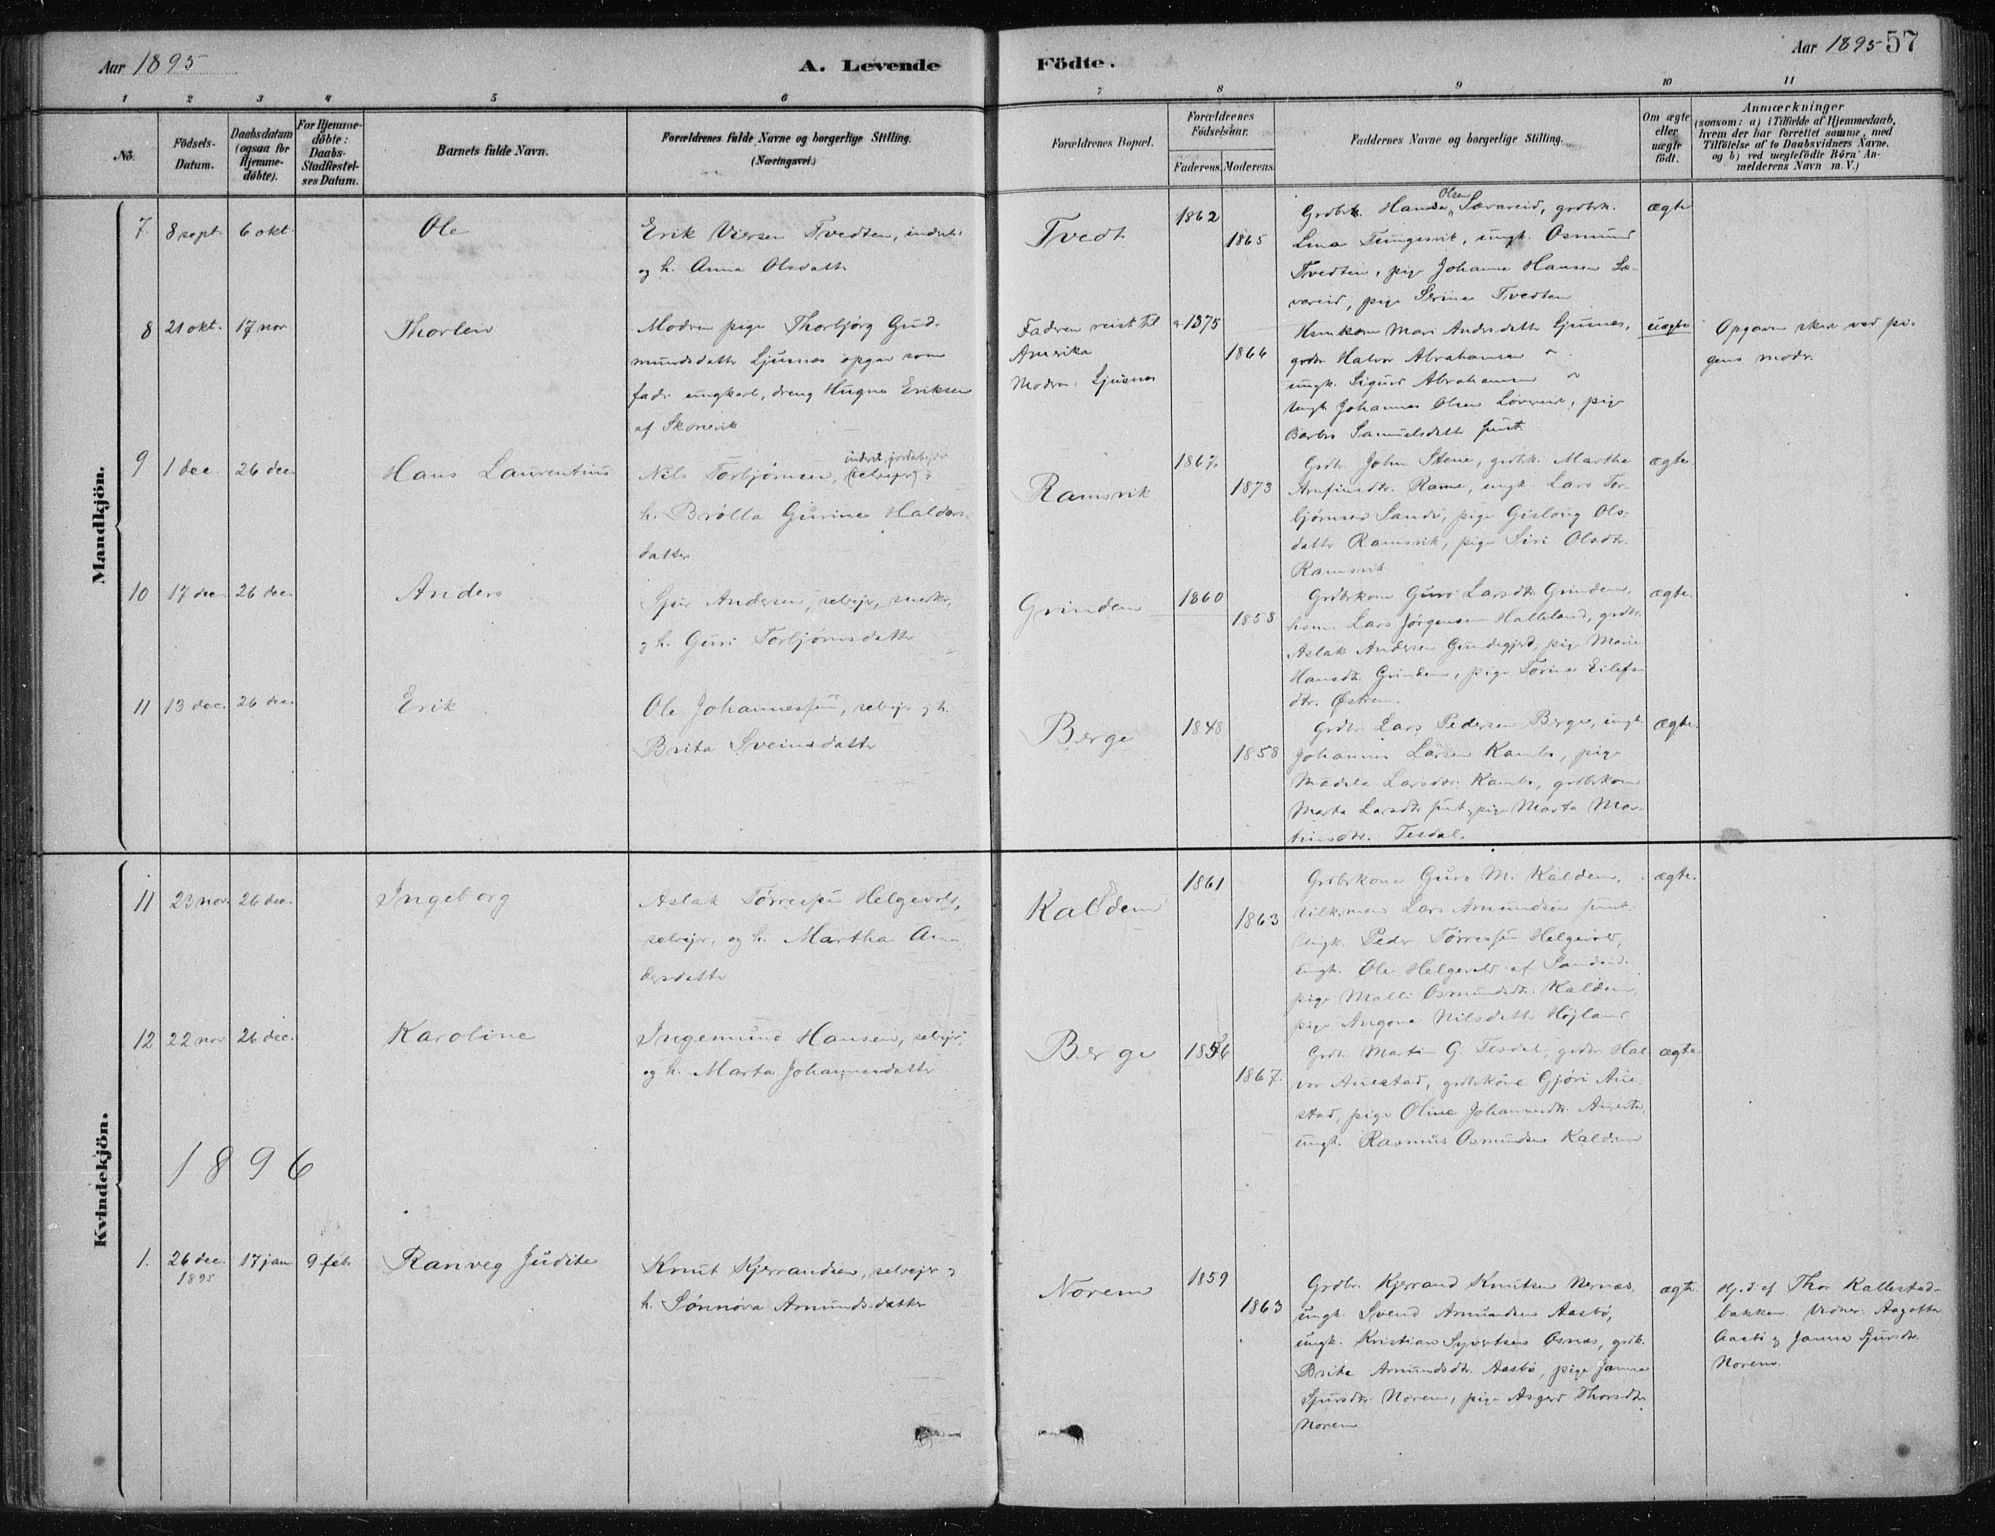 Aar 1895
A. Levende
Födte.
Aar 1895
57
1 2 3 4 5 6 7 8 9 10 11
No.
Födsels-
Datum.
Daabsdatum
(ogsaa for
Hjemme-
döbte).
For Hjemme-
döbte:
Daabs-
Stadfæstel-
ses Datum.
Barnets fulde Navn.
Forældrenes fulde Navne og borgerlige Stilling.
(Næringsvei.)
Forældrenes Bopæl.
Forældrenes
Födselsaar.
Faderens. Moderens.
Faddernes Navne og borgerlige Stilling.
Om ægte
eller
uægte
födt.
Anmærkninger
(saasom: a) i Tilfælde af Hjemmedaab,
hvem der har forrettet samme, med
Tilföielse af to Daabsvidners Navne,
og b) ved uægtefödte Börn An-
melderens Navn m. V.)
Mandkjön.
7 8 sept. 6 okt. Ole
Erik Tvedten,
og h. Anna Olsdatter
Tvedt
1862
1865
Olsen
Hans Sævareid, grdbrk.
Lina Tungesvik, ungk. Osmund
Tvedten, pige Johanne Hansen Sæ-
vareid, pige Serine Tvedten
ægte
8 21 okt. 17 nov Thorleiv
Modren pige Thorbjørg Gud-
mundsdatter Ljusnes opgav som
fadr ungkarl, dreng Eriksen
af Skonevik
Faderen reist til
Amerika
Modren. Ljusnes
1875
1866
Mari Andersdatter Ljusnes,
grdbr Halvor Abrahamsen "
ungk. Sigurd Abrahamsen "
ungk. Johannes Olsen, pige
Barbro Samuelsdatter
uægte
Opgaven sked ved pi-
gens modr.
9 1 dec. 26 dec. Hans Laurentius
Nils Torbjørnsen,
h. Brølla Gurine Haldors-
datter
Ramsvik
1867
1873
Grdbr. John Stene, grdbk. Martha
Arnfinsdtr. Rame, ungk. Lars Tor-
bjørnsen Sande, pige Gislaug Ols-
datter Ramsvik, pige Siri Olsdtr.
Ramsvik
ægte
10 17 dec. 26 dec. Anders
Sjur Andersen, selvejr, snedkr,
og h. Guri Torbjørnsdatter
Grinden
1860
1858
Grdbrkone Guro Larsdtr. Grinden,
Lars Jørgensen Halleland, grdbr.
Aslak Andersen, pige Marie
Hansdtr. Grinden, pige Torine Eilefs-
dtr. Østrem.
ægte.
11 13 dec. 26 dec. Erik
Ole Johannessen, selvejr og h.
Brita Sveinsdatter
Berge
1848
1858
Grdbr. Lars Pedersen Berge, ungk.
Johannes Larsen Kambe, pige
Madele Larsdtr. Kambe, grdbrkone
Marta Larsdtr, pige Marta Mar-
tinsdtr. Tesdal.
ægte.
Kvindekjön.
11 23 nov. 26 dec. Ingeborg
Aslak Tørressen Helgevold,
selvejr, og h. Martha An-
dersdatter
Kaldem
1861
1863
Grdbrkone Guro M. Kaldem,
Lars Amundsen
ungk. Peder Tørressen Helgevold,
ungk. Ole Helgevold af Sandeid.
pige Malli Osmundsdtr. Kaldem,
pige Angona Nilsdatter Højland
ægte.
12 22 nov 26 dec. Karoline
Ingemund Hansen, selvejr,
og h. Marta Johannesdatter
Berge
1856
1867.
Grdbr. Martin G. Tesdal, grdbr. Hal-
vor Auestad, grdbrkone Gjøri Aue-
stad, pige Oline Johannesdtr.
ungk. Rasmus Osmundsen Kaldem
ægte
1896
1. 26 dec. 1895 17 jan 9 feb. Ranveg Judite
Knut Kjerrandsen, selvejr og
h. Sønnøva Amundsdatter
Norem
1859
1863
Grdbr. Kjerrand Knutsen Nernæs,
ungk. Svend Amundsen Aasbø,
ungk. Kristian Syvertsen Osnes, grdk.
Brita Amundsdtr. Aasbø, pige Janna
Sjursdtr. Norem, pige Asgerd Thorsdtr.
Norem
ægte
Hj.d. af Thor Kallestad-
bakken. Vidner: Aagotha
Aasbø og Janna Sjursdtr.
Norem.